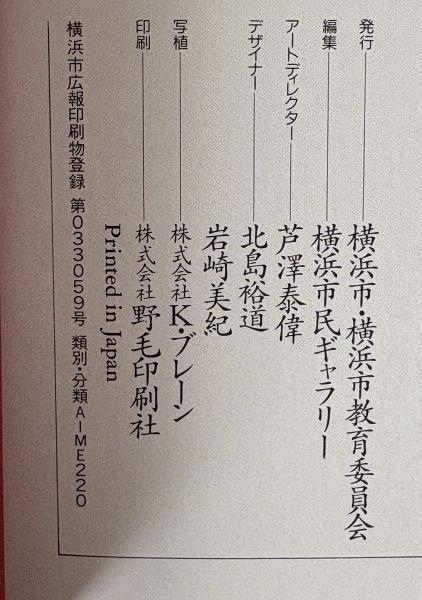 発行 横浜市・横浜市教育委員会
編集 横浜市民ギャラリー
アートディレクター 芦澤泰偉
デザイナー 北島裕道
岩崎美紀
写植 株式会社K・ブレーン
印刷 株式会社野毛印刷社
Printed in Japan
横浜市広報印刷物登録 第033059号 類別・分類A-ME220